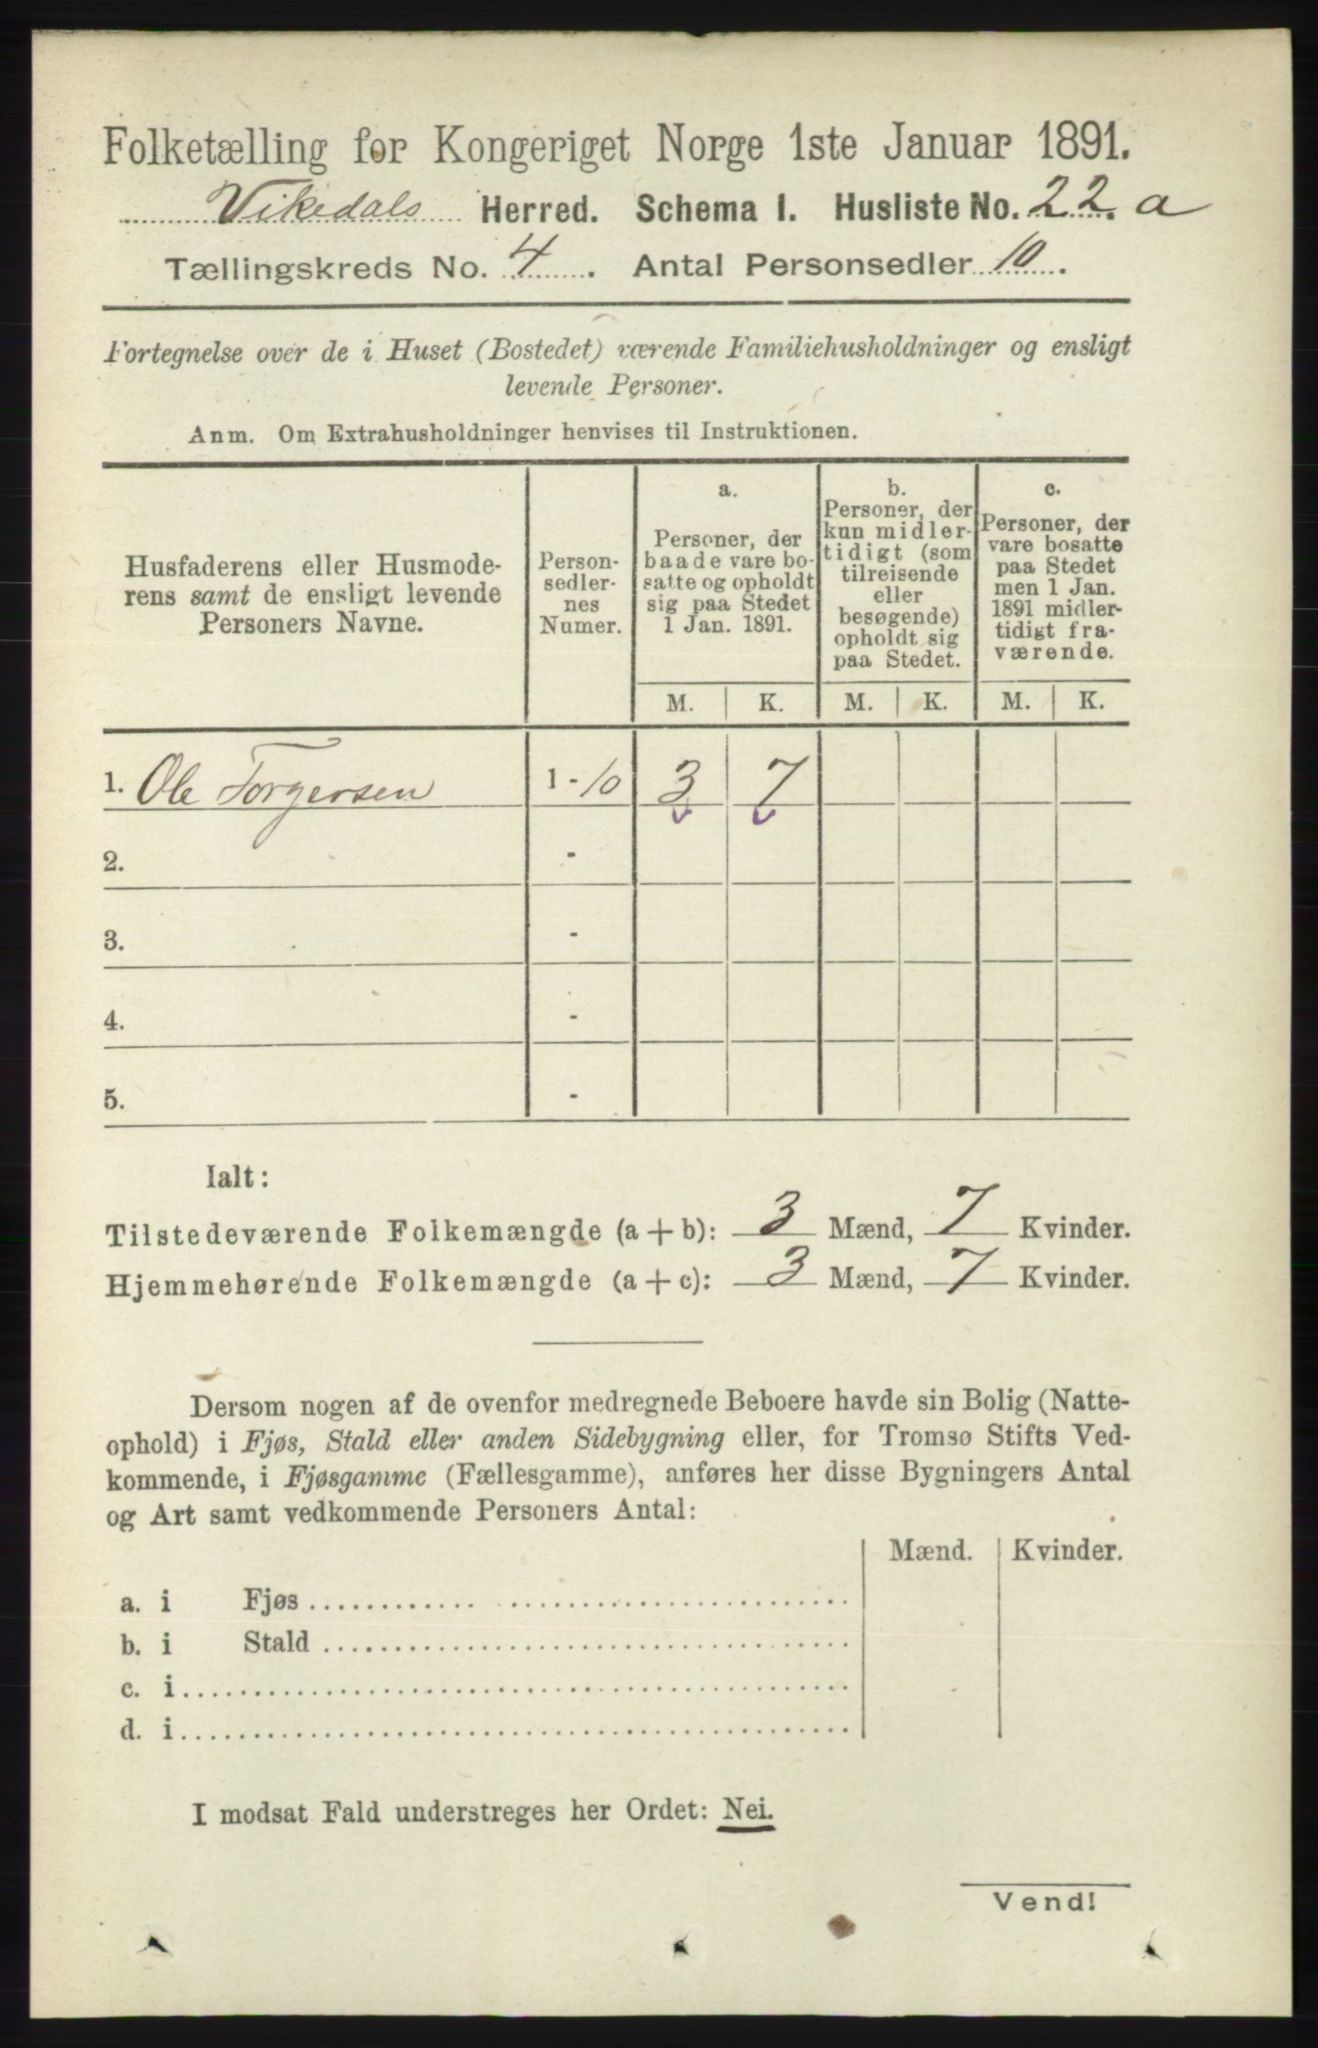 Folketælling for Kongeriget Norge 1ste Januar 1891.
Vikedals Herred. Schema I. Husliste No. 22. a
Tællingskreds No. 4. Antal Personsedler 10.
Fortegnelse over de i Huset (Bostedet) værende Familiehusholdninger og ensligt
levende Personer.
Anm. Om Extrahusholdninger henvises til Instruktionen.
Husfaderens eller Husmode-
rens samt de ensligt levende
Personers Navne.
Person-
sedler-
nes
Numer.
a.
Personer, der
baade vare bo-
satte og opholdt
sig paa Stedet
1 Jan. 1891.
b.
Personer, der
kun midler-
tidigt (som
tilreisende
eller
besøgende)
opholdt sig
paa Stedet.
c.
Personer, der
vare bosatte
paa Stedet
men 1 Jan.
1891 midler-
tidigt fra-
værende.
M. K. M. K. M. K.
1. Ole Torgersen 1-10 3 7
2. -
3. -
4. -
5. -
Ialt:
Tilstedeværende Folkemængde (a+b): 3 Mænd, 7 Kvinder.
Hjemmehørende Folkemængde (a+c): 3 Mænd, 7 Kvinder.
Dersom nogen af de ovenfor medregnede Beboere havde sin Bolig (Natte-
ophold) i Fjøs, Stald eller anden Sidebygning eller, for Tromsø Stifts Ved-
kommende, i Fjøsgamme (Fællesgamme), anføres her disse Bygningers Antal
og Art samt vedkommende Personers Antal:
Mænd. Kvinder.
a. i Fjøs
b. i Stald
c. i
d. i
I modsat Fald understreges her Ordet: Nei.
Vend!